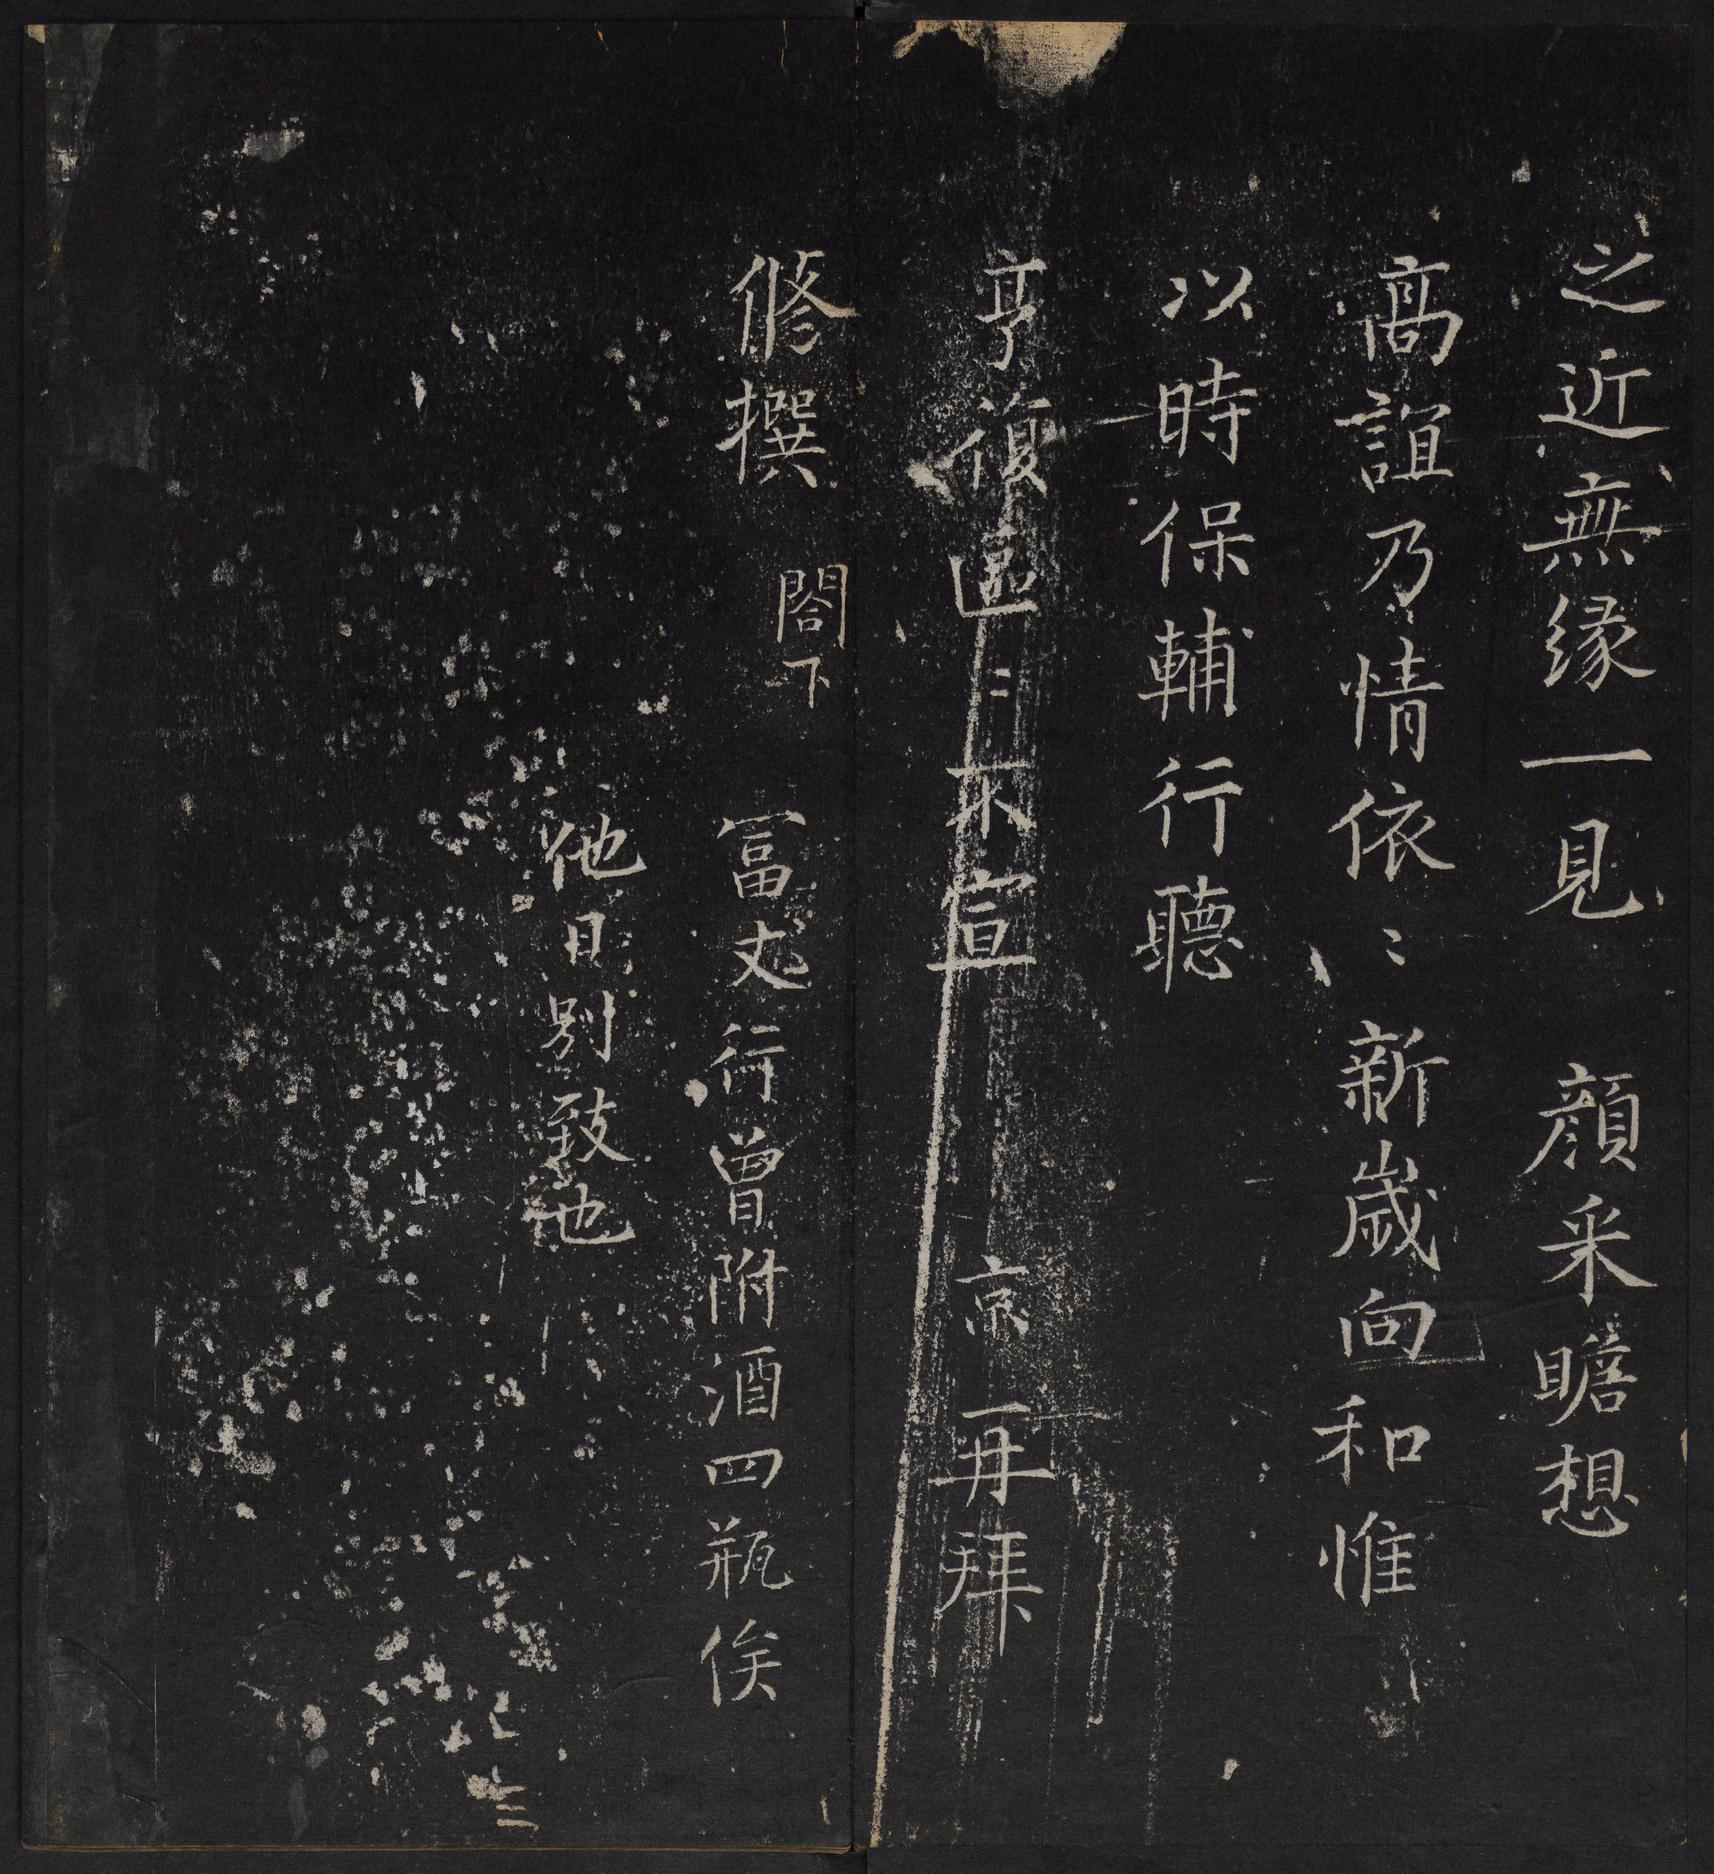 之近無緣一見 顏采瞻想
高誼乃情依〻新歲向和惟
以時保輔行聽
亨復區〻不宣 京再拜
脩撰 閤下 冨丈行曾附酒四瓶俟
他日別致也